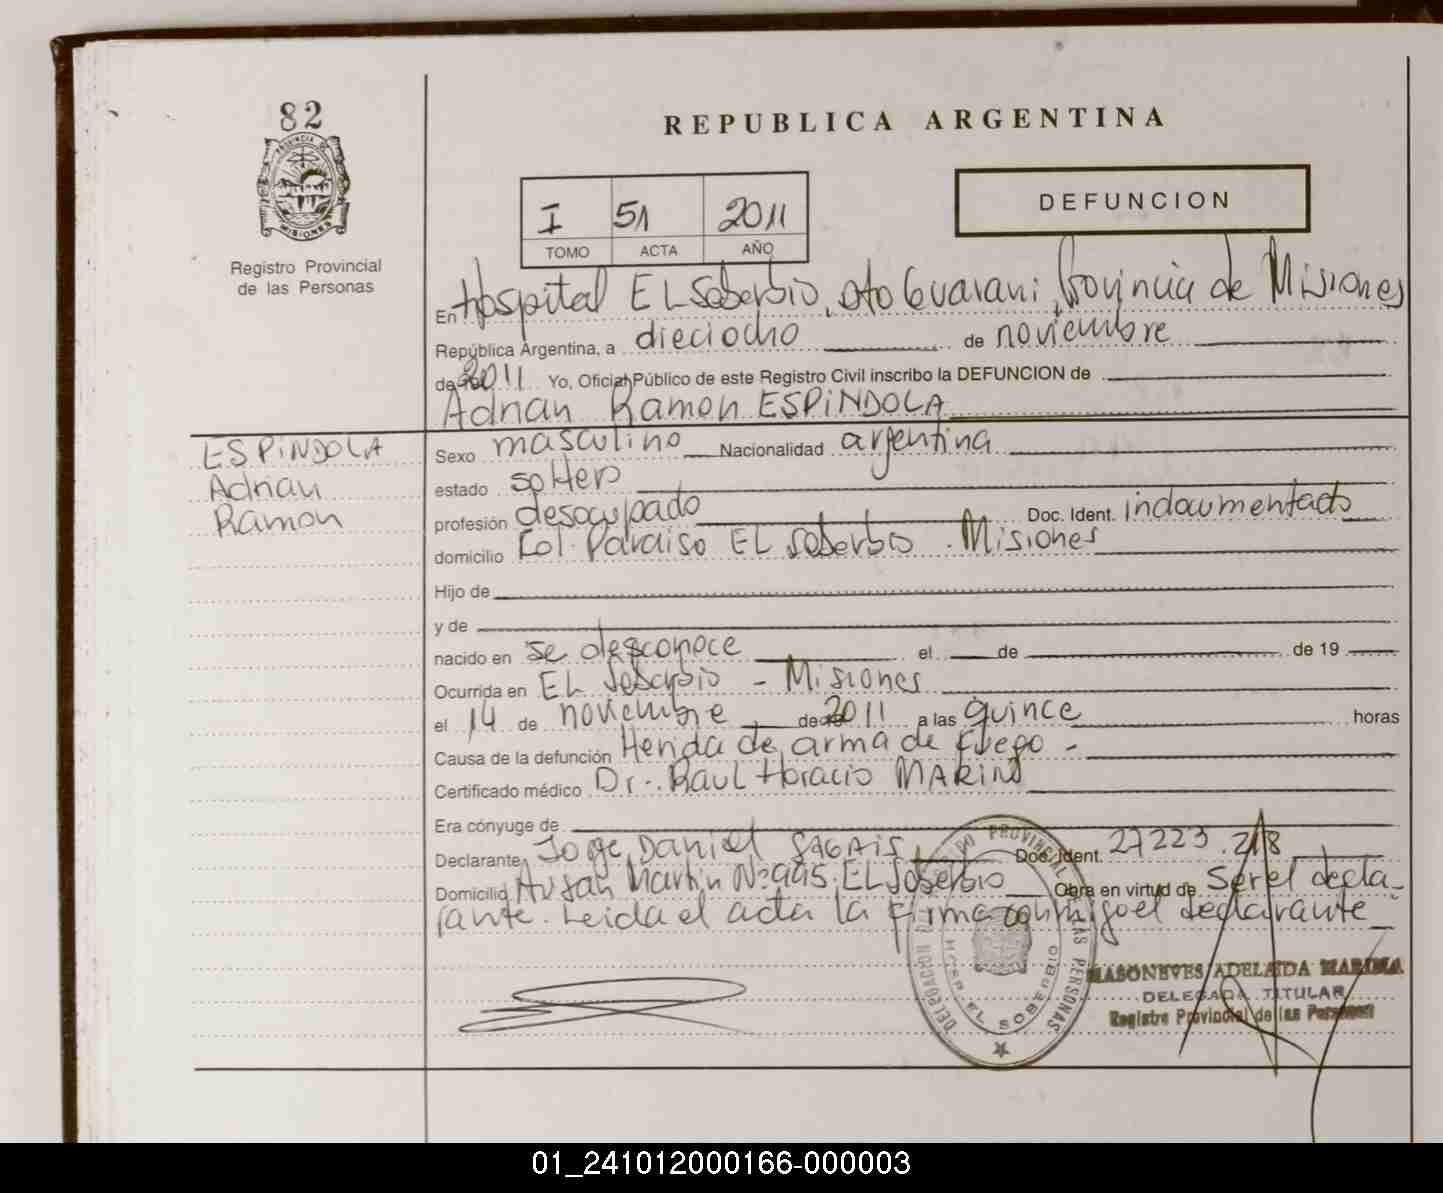 82
REPUBLICA ARGENTINA
PROVINCIA DE
MISIONES
Registro Provincial
de las Personas
I 51 2011
TOMO ACTA AÑO
DEFUNCION
En Hospital EL Soberbio, Dto Guarani, Provincia de Misiones
República Argentina, a dieciocho de noviembre
de 2011 Yo, Oficial Público de este Registro Civil inscribo la DEFUNCION de
Adrian Ramon ESPiNDOLA
ESPiNDOLA
Adrian
Ramon
Sexo masculino Nacionalidad argentina
estado soltero
profesión desocupado Doc. Ident. indocumentado
domicilio Col. Paraiso EL Soberbio - Misiones
Hijo de
y de
nacido en se desconoce el de de 19
Ocurrida en EL Soberbio - Misiones
el 14 de noviembre de 2011 a las quince horas
Causa de la defunción Herida de arma de fuego -
Certificado médico Dr. Raul Horacio MARiNO
Era cónyuge de
Declarante Jorge Daniel Doc. Ident. 27223.218
Domicilio Av San Martin Nº 995. EL Soberbio Obra en virtud de Ser el decla-
rante. Leida el acta la firma conmigo el declarante
PROVINCIAL DE LAS PERSONAS
EL SOBERBIO
MASONEVES ADELAIDA MARINA
DELEGADA TITULAR
Registro Provincial de las Personas
01_241012000166-000003